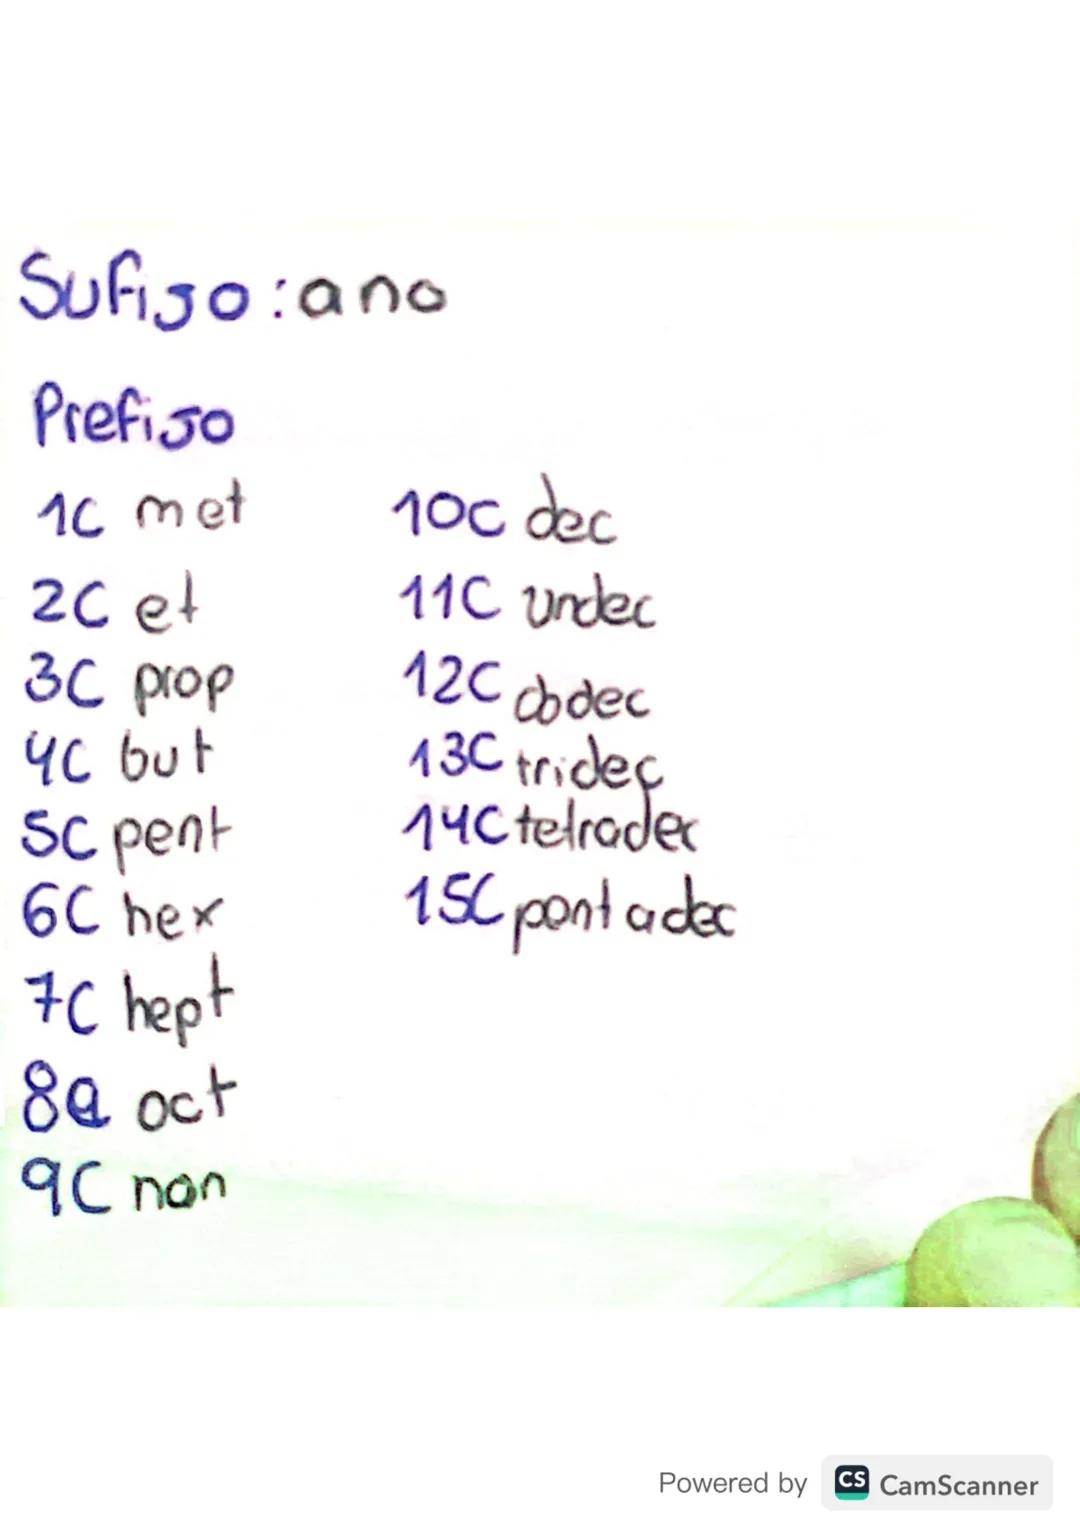 Sufijo: ano
Prefijo
1C met
2C et
3C prop
4C but
5C pent
6C hex
7C hept
8C oct
9C non
10C dec
11C undec
12C dodec
13C tridec
14C tetradec
15C pentadec
Powered by CS CamScanner